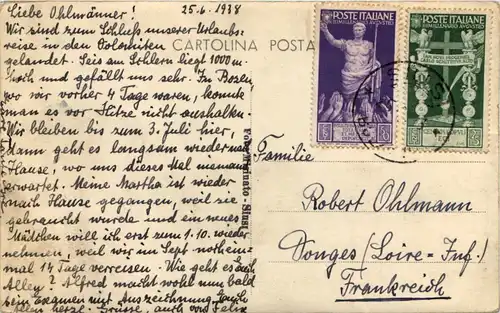 Liebe Ohlmänner! 25.6.1938
Wir sind zum Schluß unserer Urlaubs-
reise in den Dolomiten
gelandet. Seis am Schlern liegt 1000 m
hoch und gefällt uns sehr. In Bozen,
wo wir vorher 4 Tage waren, konnte
man es vor Hitze nicht aushalten.
Wir bleiben bis zum 3. Juli hier,
dann geht es langsam wieder nach
Hause, wo uns dieses Mal niemand
erwartet. Meine Martha ist wieder
nach Hause gegangen, weil sie
gebraucht wurde und ein neues
Mädchen will ich erst zum 1.10. wieder
nehmen, weil wir im Sept. noch ein-
mal 14 Tage verreisen. Wie geht es Euch
Allen? Alfred macht wohl nun bald
sein Examen mit Auszeichnung. Euch
Allen herzl. Grüsse, auch von Felix
CARTOLINA POSTA
POSTE ITALIANE
BIMILLENARIO AUGUSTEO
POSTE ITALIANE
BIMILLENARIO AUGUSTEO
Familie
Robert Ohlmann
Donges (Loire-Inf.)
Frankreich